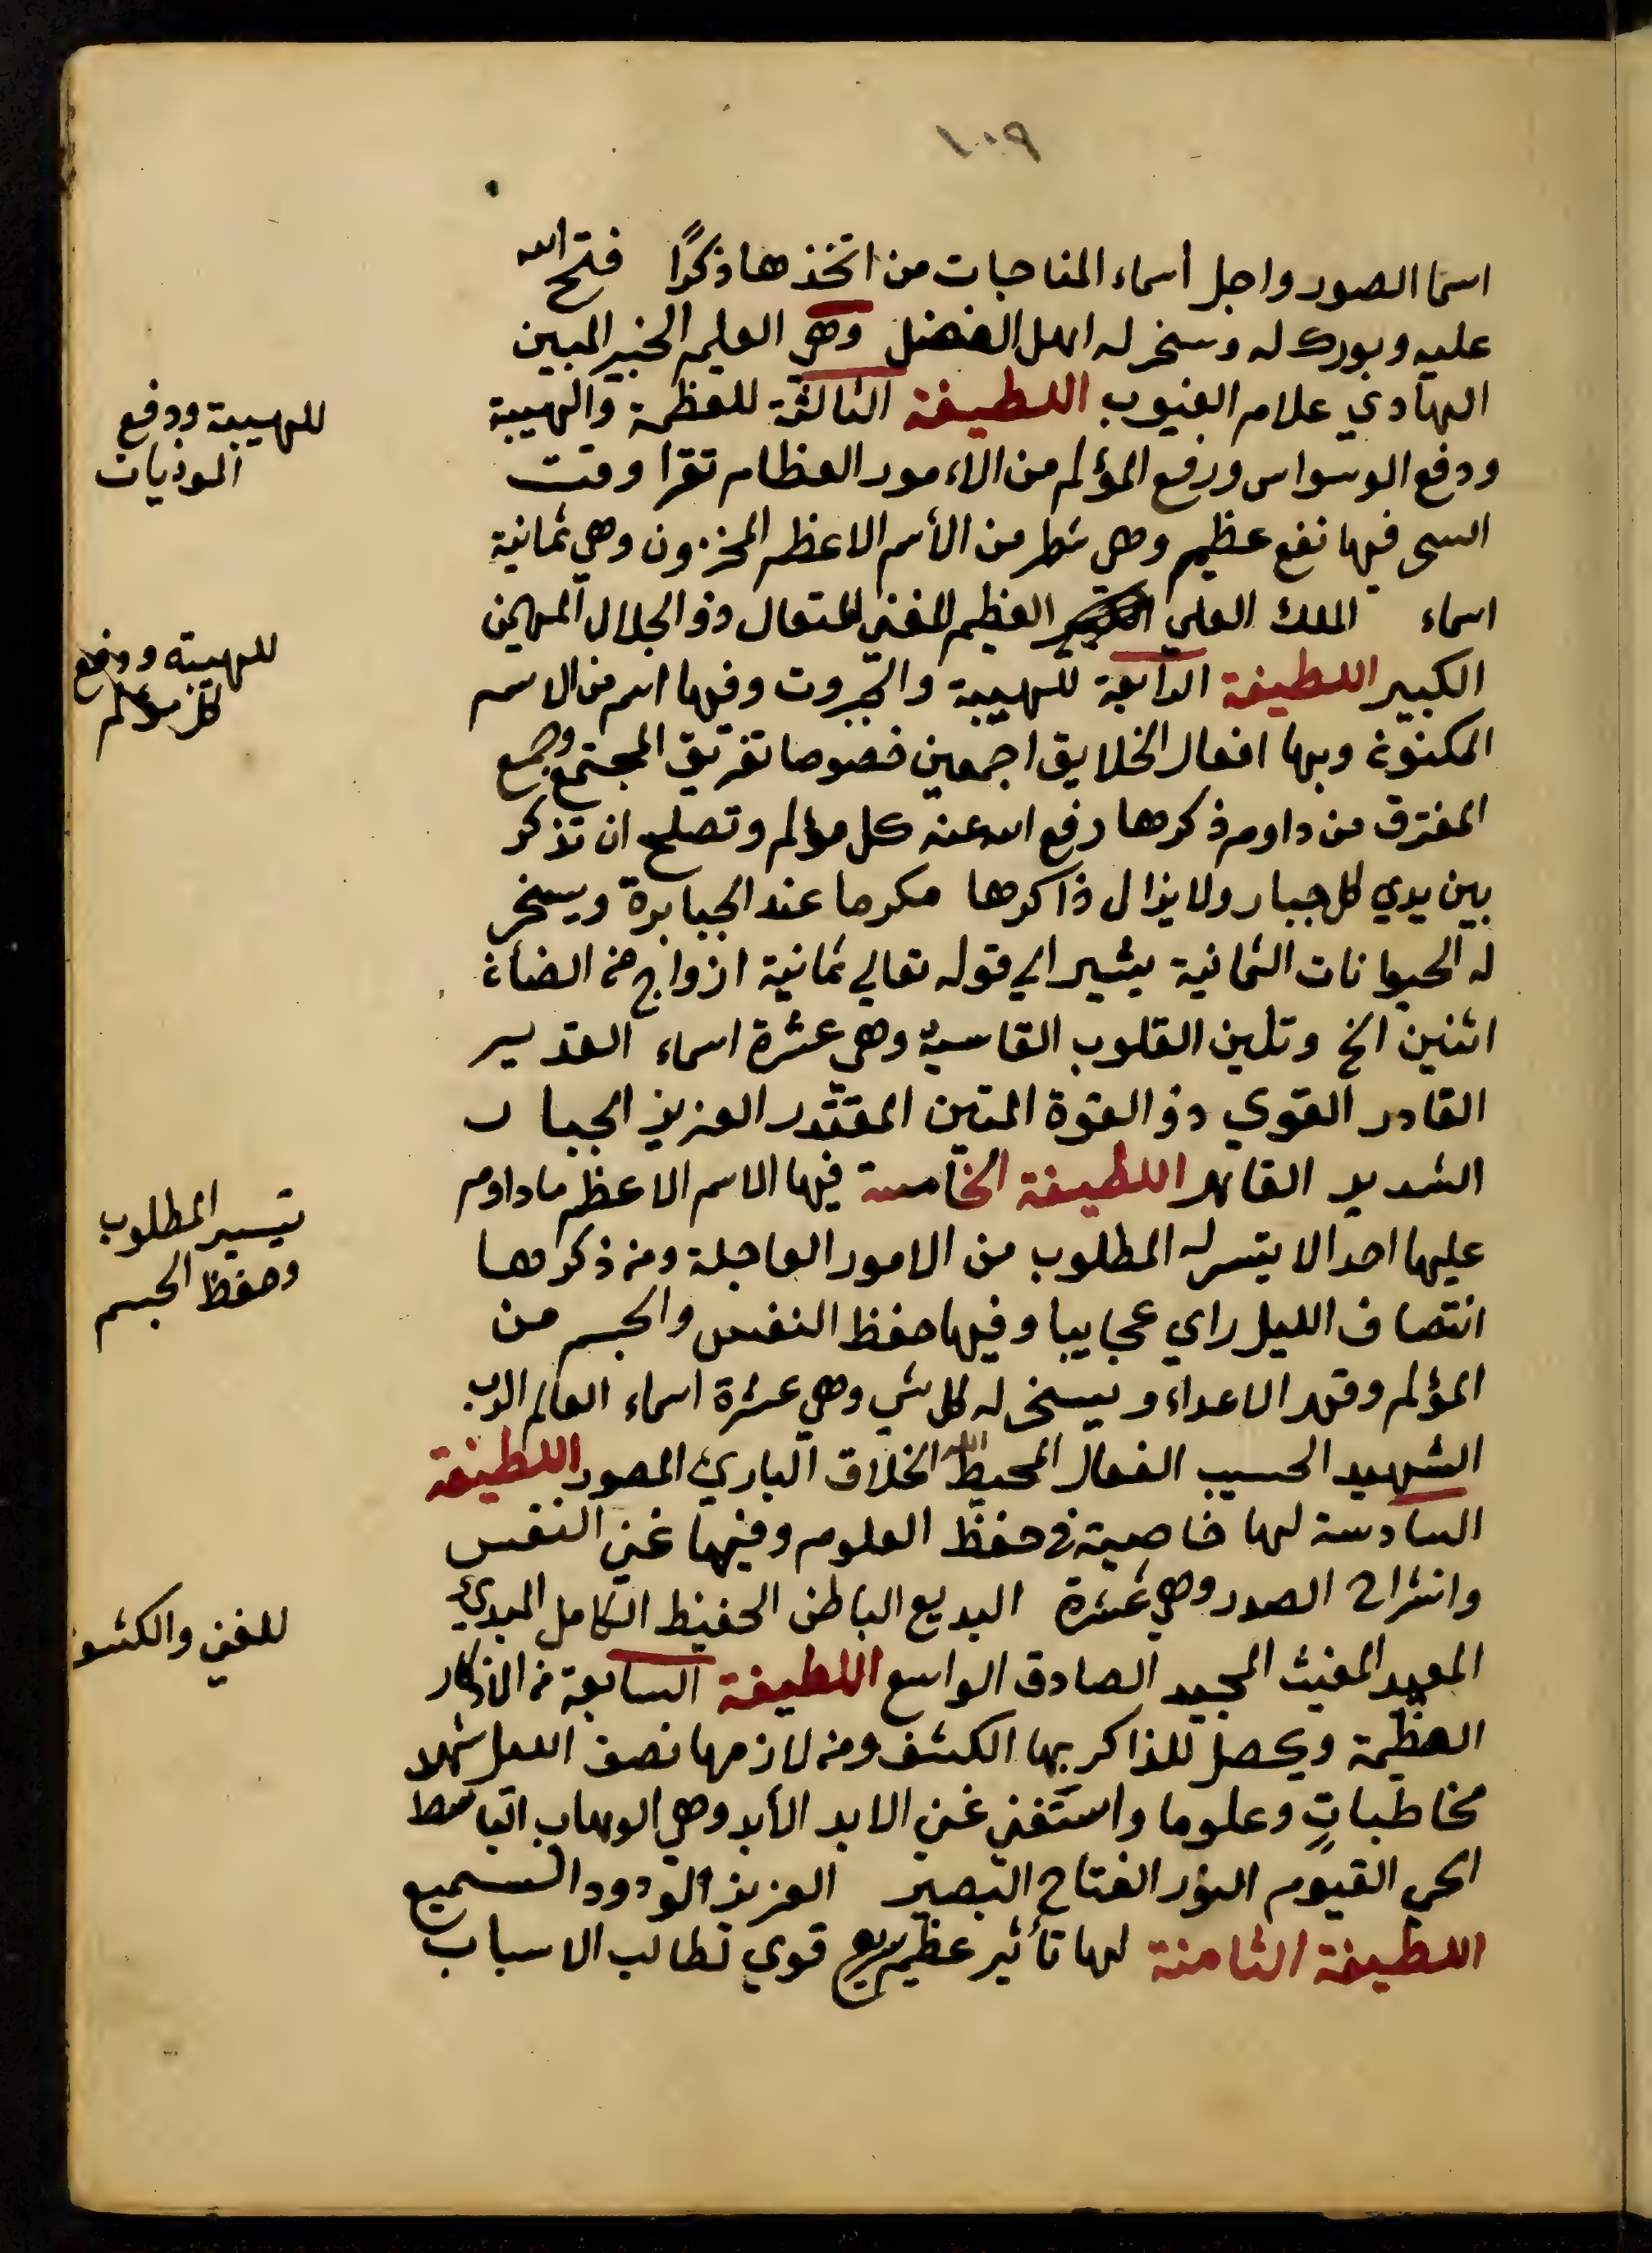 ١٠٩
اسما الصور واجل أسماء المناجات من اتخذها ذكرًا فتح الله
عليه وبورك له وسخر له اهل الفضل وهي العليم الخبير المبين
الهادي علام الغيوب اللطيفة الثالثة للعظمة والهيبة
ودفع الوسواس ورفع المؤلم من الاءمور العظام تقرا وقت
السحر فيها نفع عظيم وهي شطر من الأسم الاعظم المخزون وهي ثمانية
اسماء الملك العلي العظيم المغني المتعال ذو الجلال المهيمن
الكبير اللطيفة الرابعة للهيبة والجبروت وفيها اسم من الاسم
المكنون وبها افعال الخلايق اجمعين خصوصا تفريق المجتمع وجمع
المفترق من داوم ذكرها رفع الله عنه كل مؤلم وتصلح ان تذكر
بين يدي كل جبار ولا يزال ذاكرها مكرما عند الجبابرة ويسخر
له الحيوانات الثمانية يشير الي قوله تعالي ثمانية ازواج من الضأن
اثنين الخ وتلين القلوب القاسية وهي عشرة اسماء القدير
القادر القوي ذو القوة المتين المقتدر العزيز الجبار
الشديد القاهر اللطيفة الخامسة فيها الاسم الاعظم ما داوم
عليها احد الا يتسر له المطلوب من الامور العاجلة ومن ذكرها
انتصاف الليل راي عجايبا وفيها حفظ النفس والجسم من
المؤلم وقهر الاعداء ويسخر له كل شي وهي عشرة اسماء العالم الرب
الشهيد الحسيب الفعال المحيط الله الخلاق الباريء المصور اللطيفة
السادسة لها خاصية في حفظ العلوم وفيها غني النفس
وانشراح الصدر وهي عشرة البديع الباطن الحفيظ الكامل المبديء
المعيد المغيث المجيد الصادق الواسع اللطيفة السابعة من الاذكار
العظيمة ويحصل للذاكر بها الكشف ومن لازمها نصف الليل شهد
مخاطباتٍ وعلوما واستغني غني الابد الأبد وهي الوهاب الباسط
الحي القيوم النور الفتاح البصير العزيز الودود السميع
اللطيفة الثامنة لها تأثير عظيم سريع قوي لطالب الاسباب
للهيبة ودفع
الموذيات
للهيبة ودفع
كل مؤلم
تيسير المطلوب
وحفظ الجسم
للغني والكشف